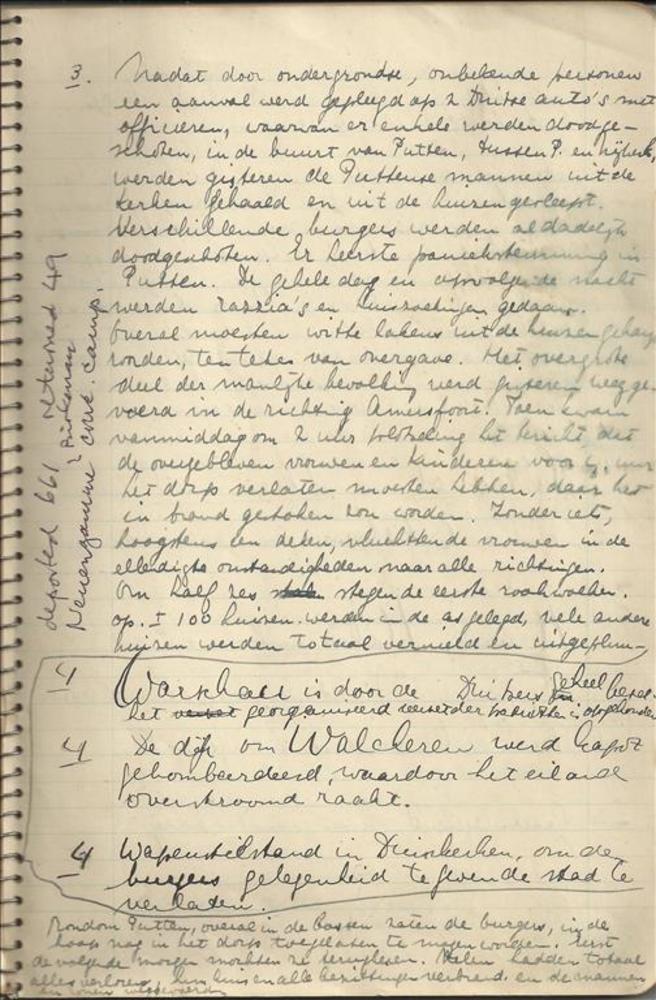 3. Nadat door ondergrondse, onbekende personen
een aanval werd gepleegd op 2 Duitse auto's met
officieren, waarvan er enkele werden doodge-
schoten, in de buurt van Putten, tussen P. en Nijkerk,
werden gisteren de Puttense mannen uit de
kerken gehaald en uit de huizen gesleept.
Verschillende burgers werden al dadelijk
doodgeschoten. Er heerste paniekstemming in
Putten. De gehele dag en opvolgende nacht
werden razzia's en huiszoekingen gedaan.
Overal moesten witte lakens uit de huizen
worden, ten teken van overgave. Het overgrote
deel der manlijke bevolking werd gisteren wegge-
voerd in de richting Amersfoort. Toen kwam
vanmiddag om 2 uur plotseling het bericht, dat
de overgebleven vrouwen en kinderen voor uur
het dorp verlaten moesten hebben, daar het
in brand gestoken zou worden. Zonder iets,
hoogstens een deken, vluchtende vrouwen in de
ellendigste omstandigheden naar alle richtingen.
Om half zes stegen de eerste rookwolken
op. ± 100 huizen werden in de as gelegd, vele andere
huizen werden totaal vernield en uitgeplun-
deported 661 returned 49
Neuengamme conc. camp.
4 Warschau is door de Duitsers geheel
het georganiseerd verzet der is opgehouden
4 De dijk om Walcheren werd kapot
gebombardeerd, waardoor het eiland
overstroomd raakt.
4 Wapenstilstand in Duinkerken, om de
burgers gelegenheid te geven de stad te
verlaten.
Rondom Putten, overal in de bossen zaten de burgers, in de
hoop nog in het dorp toegelaten te mogen worden. Eerst
de volgende morgen mochten ze terugkeren. Velen hadden totaal
alles verloren, hun huis en alle bezittingen verbrand en de mannen
en zonen weggevoerd